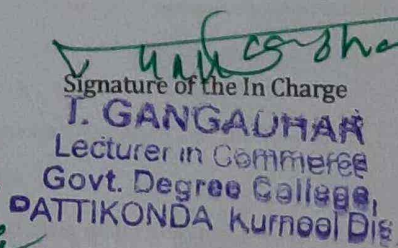 Signature of the In Charge
T. GANGADHAR
Lecturer in Commerce
Govt. Degree College,
PATTIKONDA Kurnool Dis